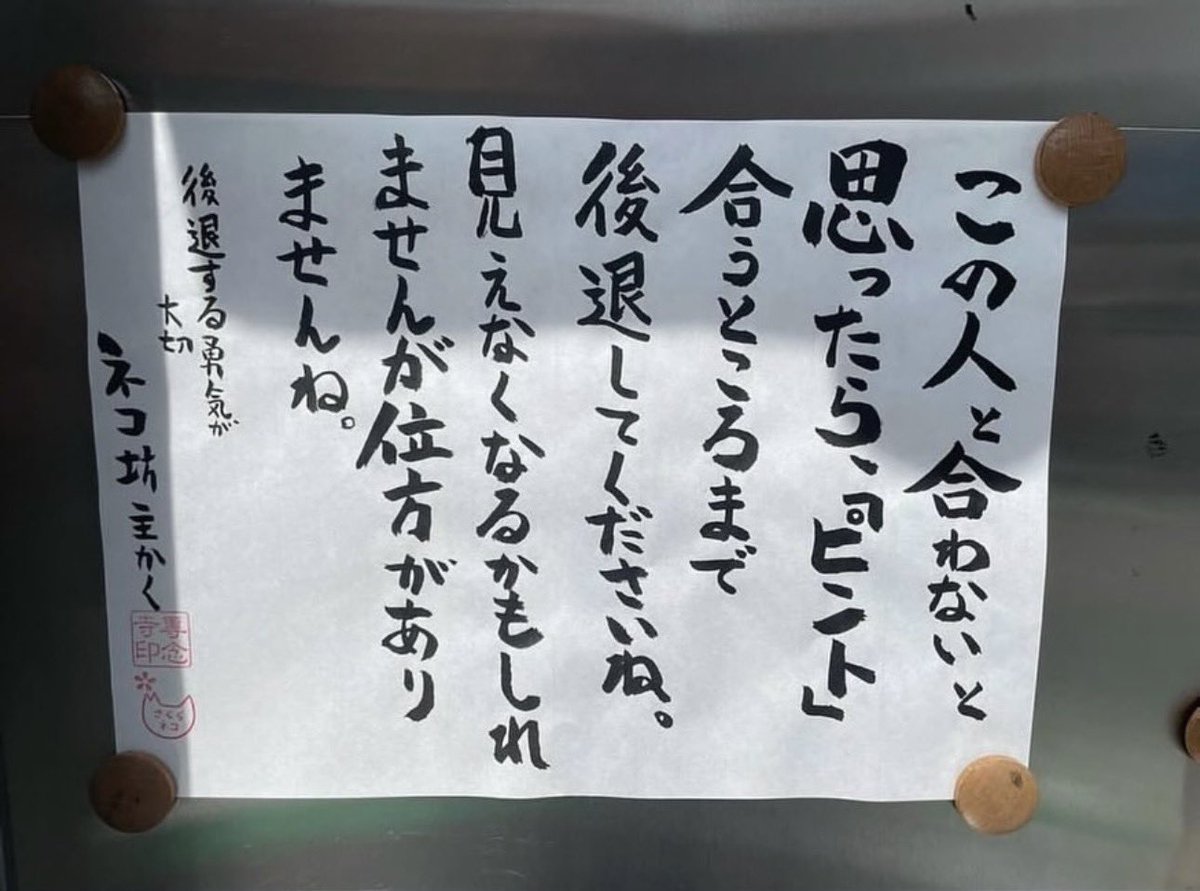 この人と合わないと
思ったら、『ピント」
合うところまで
後退してくださいね。
見えなくなるかもしれ
ませんが位方があり
ませんね。
後退する勇気が
大切
ネコ坊主かく
專念
寺印
さくら
ネコ